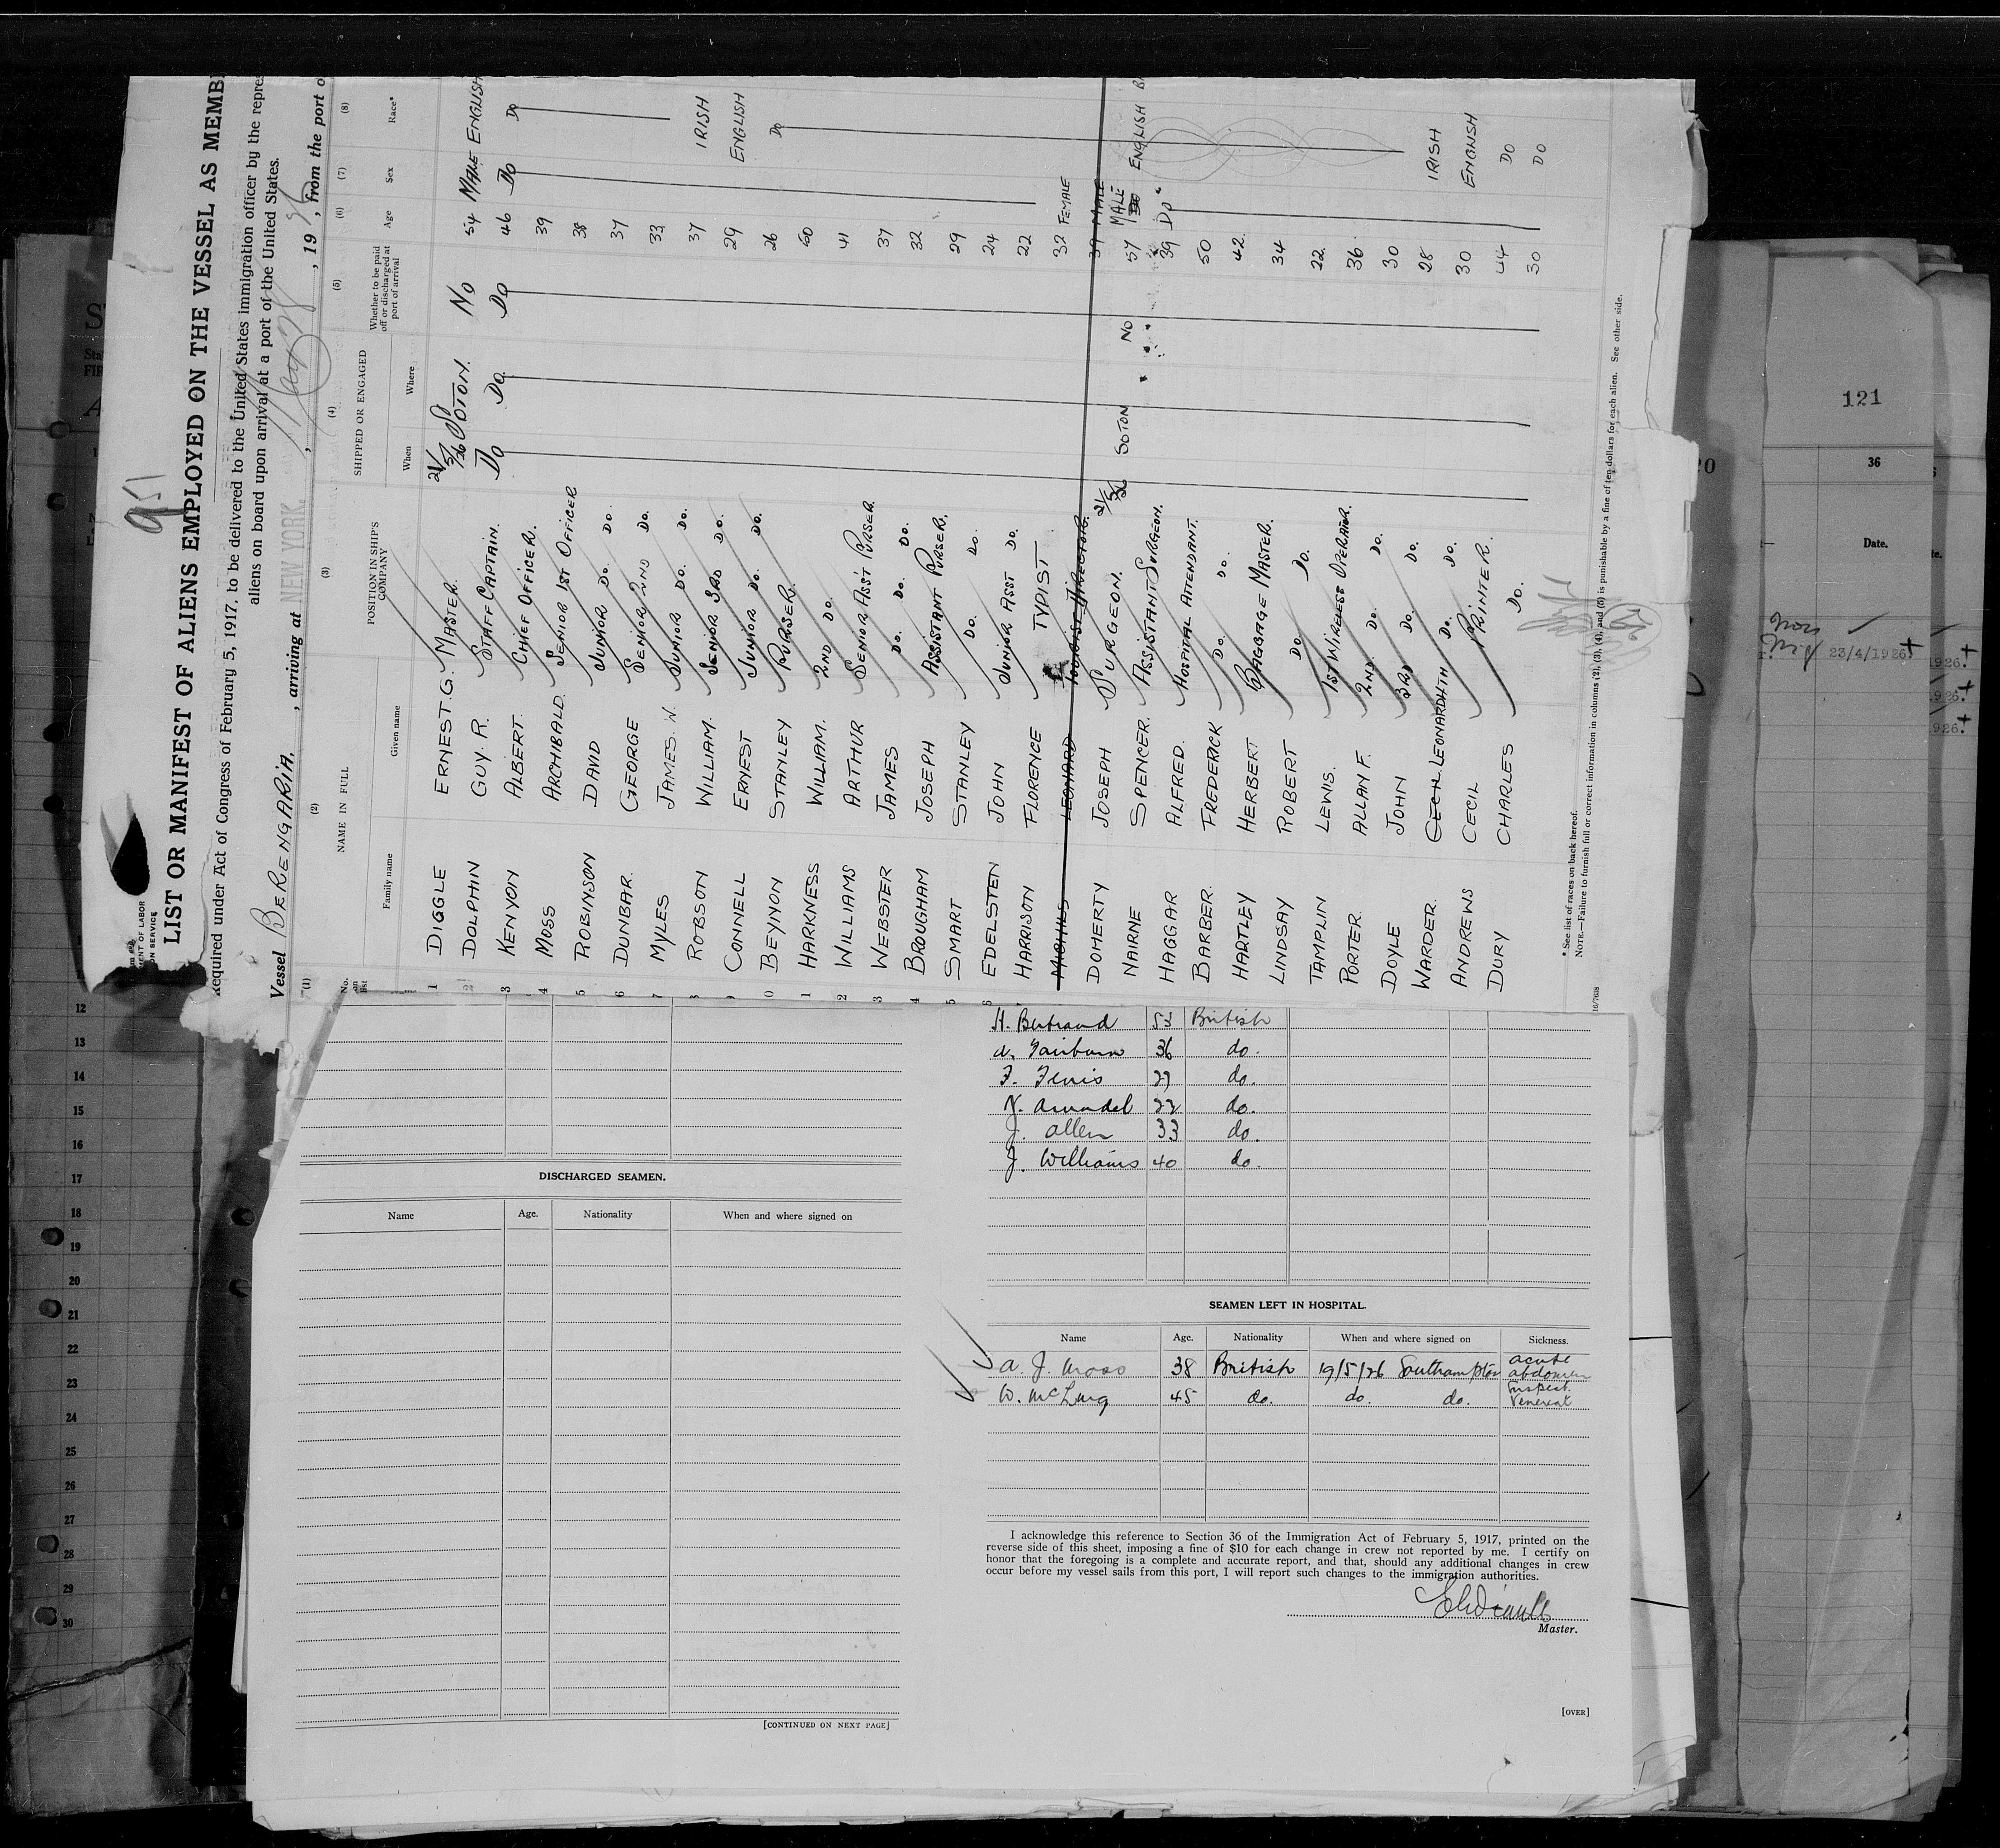 951
LIST OR MANIFEST OF ALIENS EMPLOYED ON THE VESSEL AS MEMB
Required under Act of Congress of February 5, 1917, to be delivered to the United States immigration officer by the repres
aliens on board upon arrival at a port of the United States.
Vessel BERENGARIA, , arriving at NEW YORK , May 28, 1926, from the port o
MENT OF LABOR
ON SERVICE
(1) (2) (3) (4) (5) (6) (7) (8)
No. on list NAME IN FULL POSITION IN SHIP'S COMPANY SHIPPED OR ENGAGED Whether to be paid off or discharged at port of arrival Age Sex Race*
Family name Given name When Where
1 DIGGLE ERNEST.G. MASTER. 21/5/26 SOTON. NO 54 MALE ENGLISH
2 DOLPHIN GUY R. STAFF CAPTAIN. DO DO. DO 46 DO DO
3 KENYON ALBERT. CHIEF OFFICER. 39
4 MOSS ARCHIBALD. SENIOR 1ST OFFICER 38
5 ROBINSON DAVID JUNIOR DO. DO. 37
6 DUNBAR. GEORGE SENIOR 2ND DO. 33
7 MYLES JAMES. W. JUNIOR DO. DO. 37 IRISH
8 ROBSON WILLIAM. SENIOR 3RD DO. 29 ENGLISH
9 CONNELL ERNEST JUNIOR DO. DO. 26 DO
0 BEYNON STANLEY PURSER. 50
1 HARKNESS WILLIAM. 2ND DO. 41
2 WILLIAMS ARTHUR SENIOR ASS'T PURSER. 37
3 WEBSTER JAMES DO. DO. DO. 32
4 BROUGHAM JOSEPH ASSISTANT PURSER. 29
5 SMART STANLEY DO. DO. 24
6 EDELSTEN JOHN JUNIOR ASST DO. 22
HARRISON FLORENCE TYPIST 32 FEMALE
LEONARD 39 MALE
DOHERTY JOSEPH SURGEON. 21/5/26 SOTON NO 57 MALE ENGLISH
NAIRNE SPENCER. ASSISTANT SURGEON. 39 DO
HAGGAR ALFRED. HOSPITAL ATTENDANT. 50
BARBER. FREDERICK DO. DO. 42
HARTLEY HERBERT BAGGAGE MASTER. 34
LINDSAY ROBERT DO. DO. 22
TAMPLIN LEWIS. 1ST WIRELESS OPERATOR. 36
PORTER. ALLAN F. 2ND. DO. DO. 30
DOYLE JOHN 3RD DO. DO. 28 IRISH
WARDER. CECIL LEONARD 4TH DO. DO. 30 ENGLISH
ANDREWS CECIL PRINTER. 44 DO
DURY CHARLES DO. 30 DO
* See list of races on back hereof.
NOTE.—Failure to furnish full or correct information in columns (2), (3), (4), and (6) is punishable by a fine of ten dollars for each alien. See other side.
H. Bertrand 53 British
36 do.
F. 29 do.
Arundel 22 do.
J. Allen 33 do.
J. Williams 40 do.
DISCHARGED SEAMEN.
Name Age. Nationality When and where signed on
[CONTINUED ON NEXT PAGE]
SEAMEN LEFT IN HOSPITAL.
Name Age. Nationality When and where signed on Sickness.
A. J. Moss 38 British 19/5/26 Southampton acute abdomen
W. McLurg 45 do. do. do. Suspect. Venereal
I acknowledge this reference to Section 36 of the Immigration Act of February 5, 1917, printed on the
reverse side of this sheet, imposing a fine of $10 for each change in crew not reported by me. I certify on
honor that the foregoing is a complete and accurate report, and that, should any additional changes in crew
occur before my vessel sails from this port, I will report such changes to the immigration authorities.
Master.
[OVER]
12
13
14
15
16
17
18
19
20
21
22
23
24
25
26
27
28
29
30
121
36
Date.
23/4/1926.
1926.
926.
926.